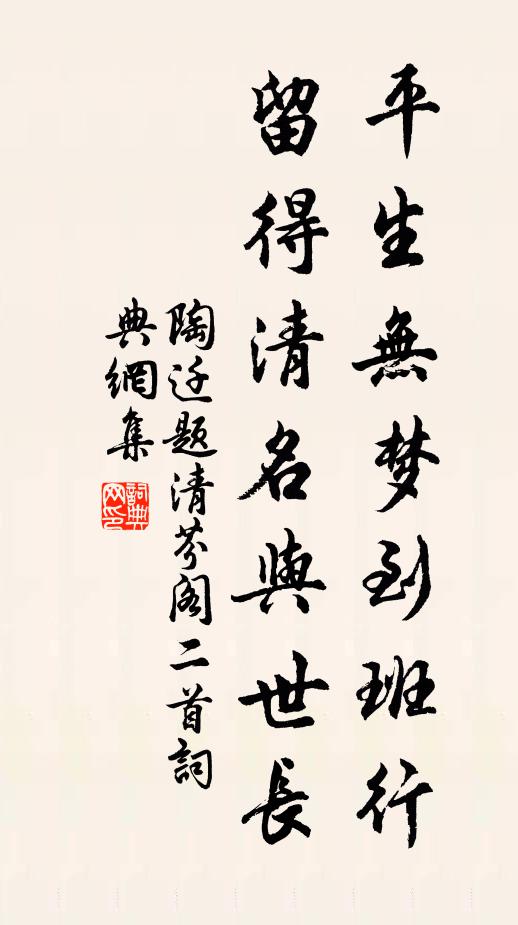 平生無梦到班行
留得清名與世長
陶迁题清芬阁二首詞
典網集
詞典
网印